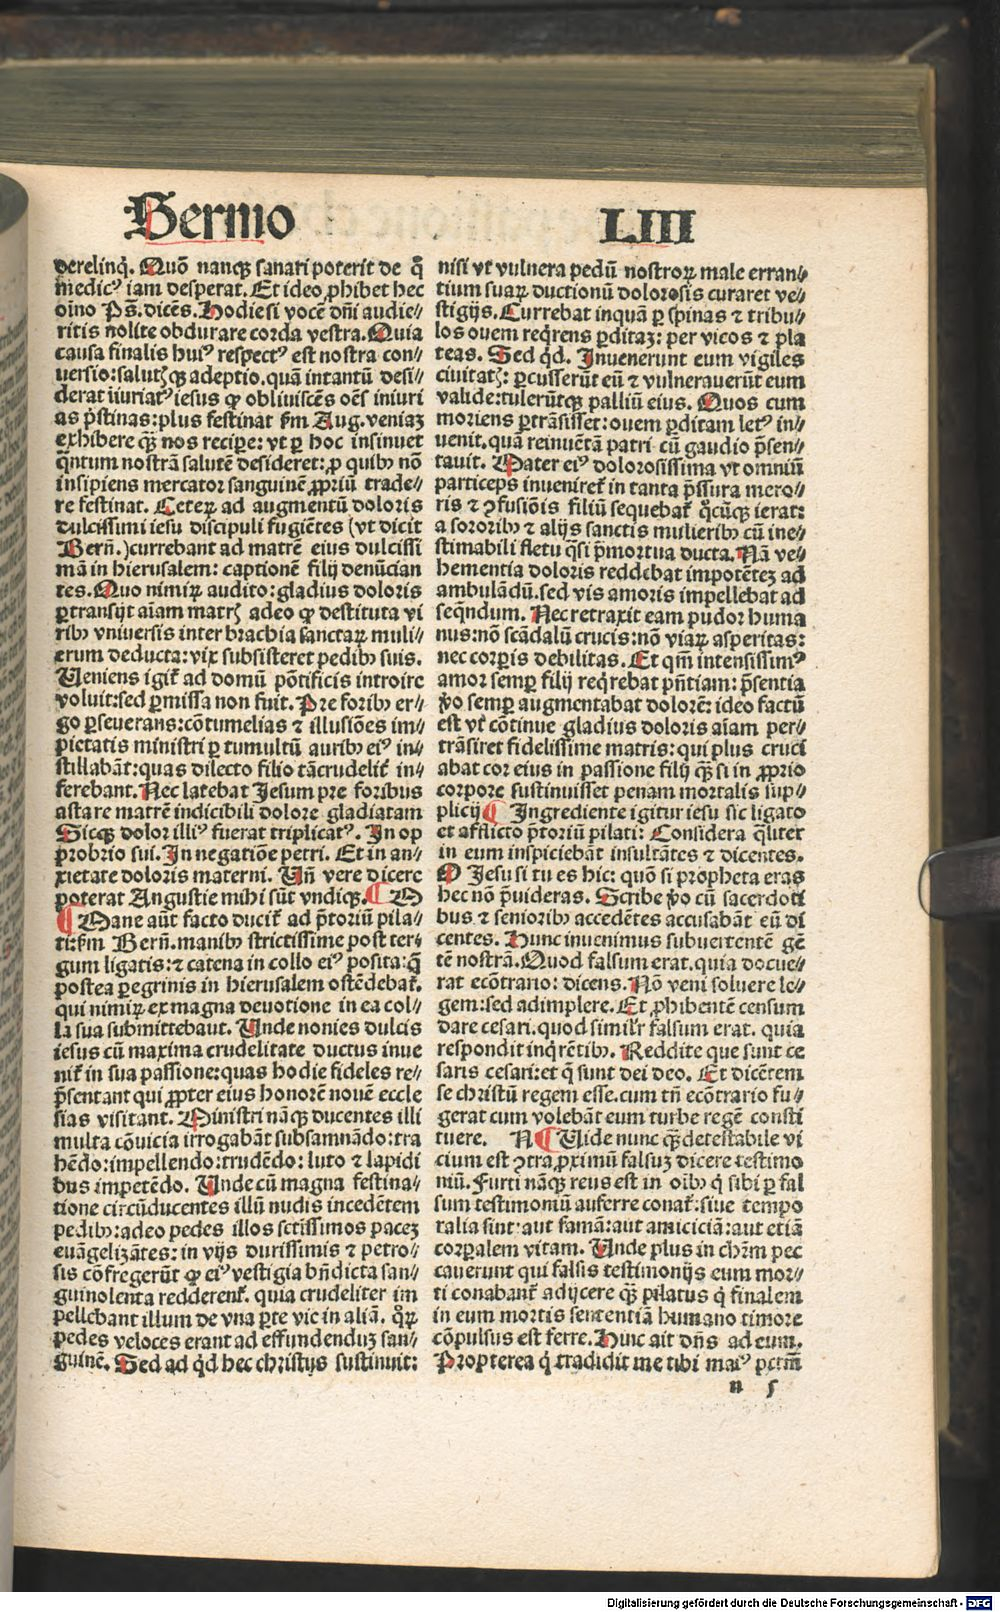 Sermo LIII
derelinq̃. Quõ nanqꝫ sanari poterit de q̃
medicꝰ iam desperat. Et ideo ꝓhibet hec
oĩno Ps̃. dicẽs. Hodie si vocẽ dñi audie-
ritis nolite obdurare corda vestra. Quia
causa finalis huiꝰ respectꝰ est nostra con//
uersio: salutꝭqꝫ adeptio. quã intantũ desi//
derat iniuriatꝰ iesus ꝙ obliuiscẽs oẽs iniuri
as p̃stinas: plus festinat ẜm Aug. veniaꝫ
exhibere qꝫ nos reciꝑe: vt ꝑ hoc insinuet
q̃ntum nostrã salutẽ desideret: ꝓ quibꝯ nõ
insipiens mercator sanguinẽ ꝓpriũ trade//
re festinat. Ceteꝝ ad augmentũ doloris
dulcissimi iesu discipuli fugiẽtes (vt dicit
Berñ.) currebant ad matrẽ eius dulcissi
mã in hierusalem: captionẽ filij denũcian
tes. Quo nimiꝝ audito: gladius doloris
ꝑtransijt aĩam matrꝭ adeo ꝙ destituta vi
ribꝯ vniuersis inter brachia sanctaꝝ muli//
erum deducta: vix subsisteret pedibꝯ suis.
Veniens igit᷑ ad domũ põtificis introire
voluit: sed ꝑmissa non fuit. Pre foribꝯ er//
go ꝑseuerans: cõtumelias ⁊ illusiões im//
pietatis ministri ꝑ tumultũ auribꝯ eiꝰ in//
stillabãt: quas dilecto filio tã crudelit᷑ in//
ferebant. Nec latebat Jesum pre foribus
astare matrẽ indicibili dolore gladiatam
Sicqꝫ dolor illiꝰ fuerat triplicatꝰ. In op
probrio sui. In negatiõe petri. Et in an//
xietate doloris materni. Vñ vere dicere
poterat Angustie mihi sũt vndiqꝫ. ¶ M
¶ Mane aũt facto ducit᷑ ad p̃toriũ pila//
ti: ẜm Berñ. manibꝯ strictissime post ter//
gum ligatis: ⁊ catena in collo eiꝰ posita: q̃
postea ꝑegrinis in hierusalem ostẽdebat᷑.
qui nimiꝝ ex magna deuotione in ea col//
la sua submittebant. Unde nonies dulcis
iesus cũ maxima crudelitate ductus inue
nit᷑ in sua passione: quas hodie fideles re//
p̃sentant qui ꝓpter eius honorẽ nouẽ eccle
sias visitant. Ministri nãqꝫ ducentes illi
multa cõuicia irrogabãt subsannãdo: tra
hẽdo: impellendo: trudẽdo: luto ⁊ lapidi
bus impetẽdo. Unde cũ magna festina//
tione circũducentes illũ nudis incedẽtem
pedibꝯ: adeo pedes illos sctissimos paceꝫ
euãgelizãtes: in vijs durissimis ⁊ petro//
sis cõfregerũt ꝙ eiꝰ vestigia bñdicta san//
guinolenta redderent᷑. quia crudeliter im
pellebant illum de vna ꝑte vic in aliã. qꝝ
pedes veloces erant ad effundenduꝫ san//
guinẽ. Sed ad q̇d hec christꝰ sustinuit:
nisi vt vulnera pedũ nostroꝝ male erran//
tium suaꝝ ductionũ dolorosis curaret ve//
stigijs. Currebat inquã ꝑ spinas ⁊ tribu//
los ouem reqͥrens ꝑditaꝫ: per vicos ⁊ pla
teas. Sed q̇d. Inuenerunt eum vigiles
ciuitatꝭ: ꝑcusserũt eũ ⁊ vulnerauerũt eum
valide: tulerũtqꝫ palliũ eius. Quos cum
moriens ꝑtrãsisset: ouem ꝑditam letꝰ in//
uenit. quã reinuẽta patri cũ gaudio p̃sen//
tauit. Mater eiꝰ dolorosissima vt omniũ
particeps inueniret᷑ in tanta p̃ssura mero//
ris ⁊ ꝯfusiõis filiũ sequebat᷑ q̊cũqꝫ ierat:
a sororibꝯ ⁊ alijs sanctis mulieribꝯ cũ ine//
stimabili fletu q̃si p̃mortua ducta. Nã ve//
hementia doloris reddebat impotẽteꝫ ad
ambulãdũ. sed vis amoris impellebat ad
seqũndum. Nec retraxit eam pudor huma
nus: nõ scãdalũ crucis: nõ viaꝝ asperitas:
nec corꝑis debilitas. Et qm̃ intensissimꝰ
amor semꝑ filij reqͥrebat pñtiam: p̃sentia
ꝟo semꝑ augmentabat dolorẽ: ideo factũ
est vt cõtinue gladius doloris aĩam per//
trãsiret fidelissime matris: qui plus cruci
abat cor eius in passione filij qꝫ si in ꝓprio
corpore sustinuisset penam mortalis sup//
plicij ¶ Ingrediente igitur iesu sic ligato
et afflicto p̃toriũ pilati: Considera q̃liter
in eum inspiciebãt insultãtes ⁊ dicentes.
O Jesu si tu es hic: quõ si propheta eras
hec nõ p̃uideras. Scribe ꝟo cũ sacerdoti
bus ⁊ senioribꝯ accedẽtes accusabãt eũ di
centes. Hunc inuenimus subuertentẽ gẽ
tẽ nostrã. Quod falsum erat. quia docue//
rat ecõtrario: dicens. Nõ veni soluere le//
gem: sed adimplere. Et ꝓhibentẽ censum
dare cesari. quod similr̃ falsum erat. quia
respondit inqͥrẽtibꝯ. Reddite que sunt ce
saris cesari: et q̃ sunt dei deo. Et dicẽtem
se christũ regem esse. cum tñ ecõtrario fu//
gerat cum volebãt eum turbe regẽ consti
tuere. N ¶ Vide nunc qꝫ detestabile vi
cium est ꝯtra ꝓximũ falsuꝫ dicere testimo
niũ. Furti nãqꝫ reus est in oĩbꝯ q̇ sibi ꝑ fal
sum testimoniũ auferre conat᷑: siue tempo
ralia sint: aut famã: aut amiciciã: aut etiã
corꝑalem vitam. Unde plus in chr̃m pec
cauerunt qui falsis testimonijs eum mor//
ti conabant᷑ adijcere qꝫ pilatus q̇ finalem
in eum mortis sententiã humano timore
cõpulsus est ferre. Hunc ait dñs ad eum.
Propterea q̇ tradidit me tibi maiꝰ pctm̃
n ſ
Digitalisierung gefördert durch die Deutsche Forschungsgemeinschaft - DFG